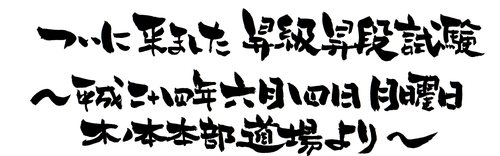 ついに来ました 昇級昇段試験
～平成二十四年六月八四日 月曜日
木ノ本本部道場より～